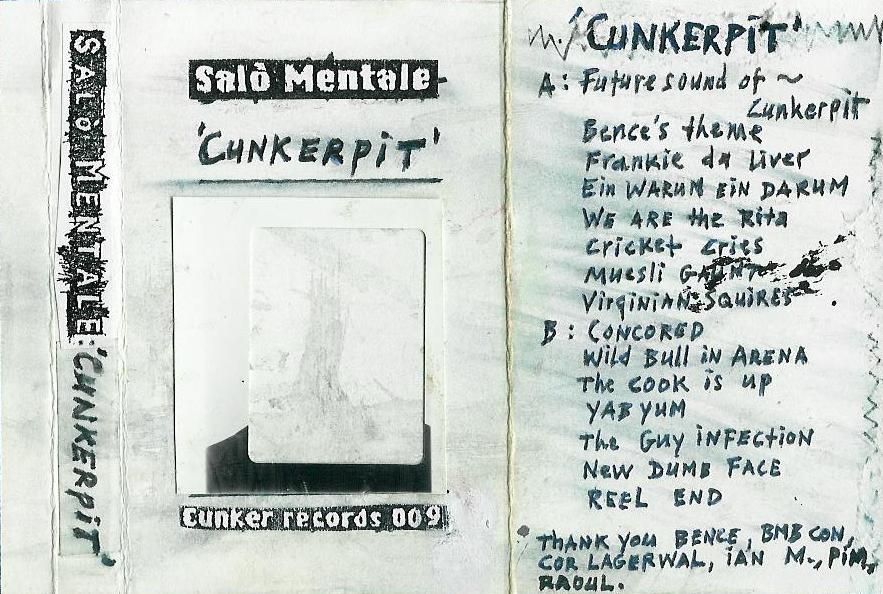 SALÒ MENTALE: 'CUNKERPiT'
Salò Mentale
'CUNKERPiT'
Cunker records 009
'CUNKERPiT'
A: Future sound of ~
Cunkerpit
Bence's theme
Frankie da Liver
Ein WARUM EiN DARUM
WE ARE the Rita
Cricket cries
Muesli GAUNT
Virginian SQUIRES
B: CONCORED
Wild Bull iN ARENA
The COOK is up
YAB YUM
The Guy iNFECTiON
NEW DUMB FACE
REEL END
THANK YOU BENCE, BMB CON,
COR LAGERWAL, iAN M., PiM,
RAOUL.